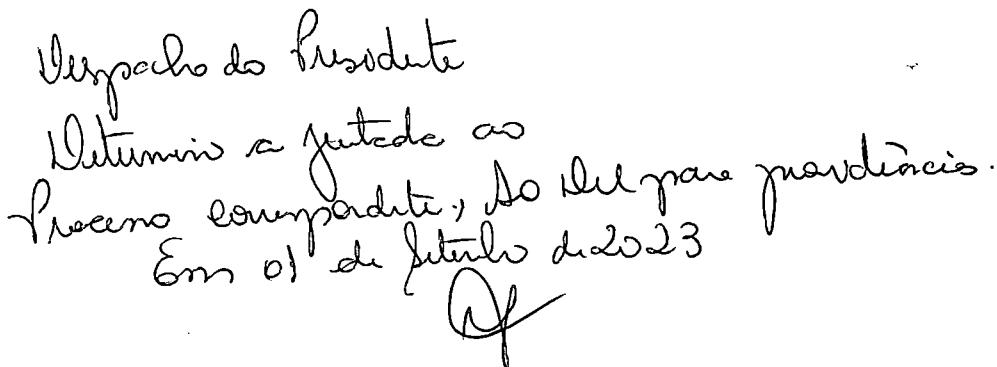 Despacho do Presidente
Determino a juntada ao
Processo correspondente, Ao Del para providências.
Em 01 de Setembro de 2023